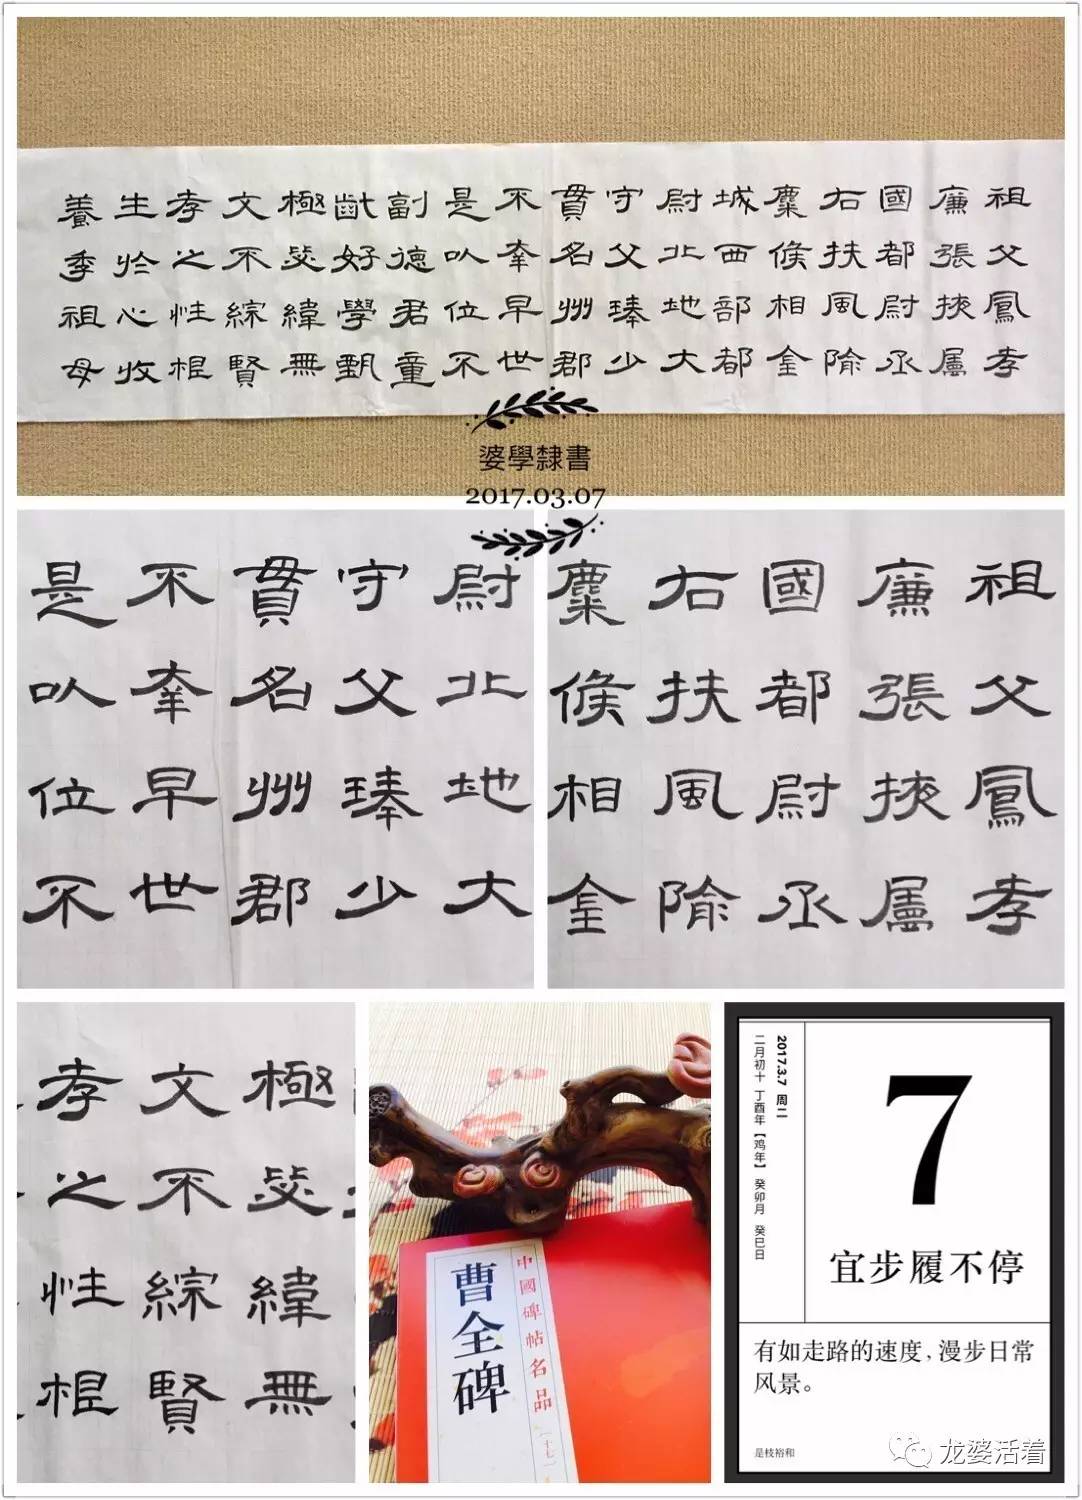 祖父鳳孝
廉張掖屬
國都尉丞
右扶風隃
麋侯相金
城西部都
尉北地大
守父琫少
貫名州郡
不幸早世
是以位不
副德君童
齔好學甄
極毖緯無
文不綜賢
孝之性根
生於心收
養季祖母
婆學隸書
2017.03.07
尉北地大
守父琫少
貫名州郡
不幸早世
是以位不
祖父鳳孝
廉張掖屬
國都尉丞
右扶風隃
麋侯相金
極毖緯無
文不綜賢
孝之性根
中國碑帖名品
[十七]
曹全碑
2017.3.7 周二
二月初十 丁酉年【鸡年】 癸卯月 癸巳日
7
宜步履不停
有如走路的速度，漫步日常
风景。
是枝裕和
龙婆活着